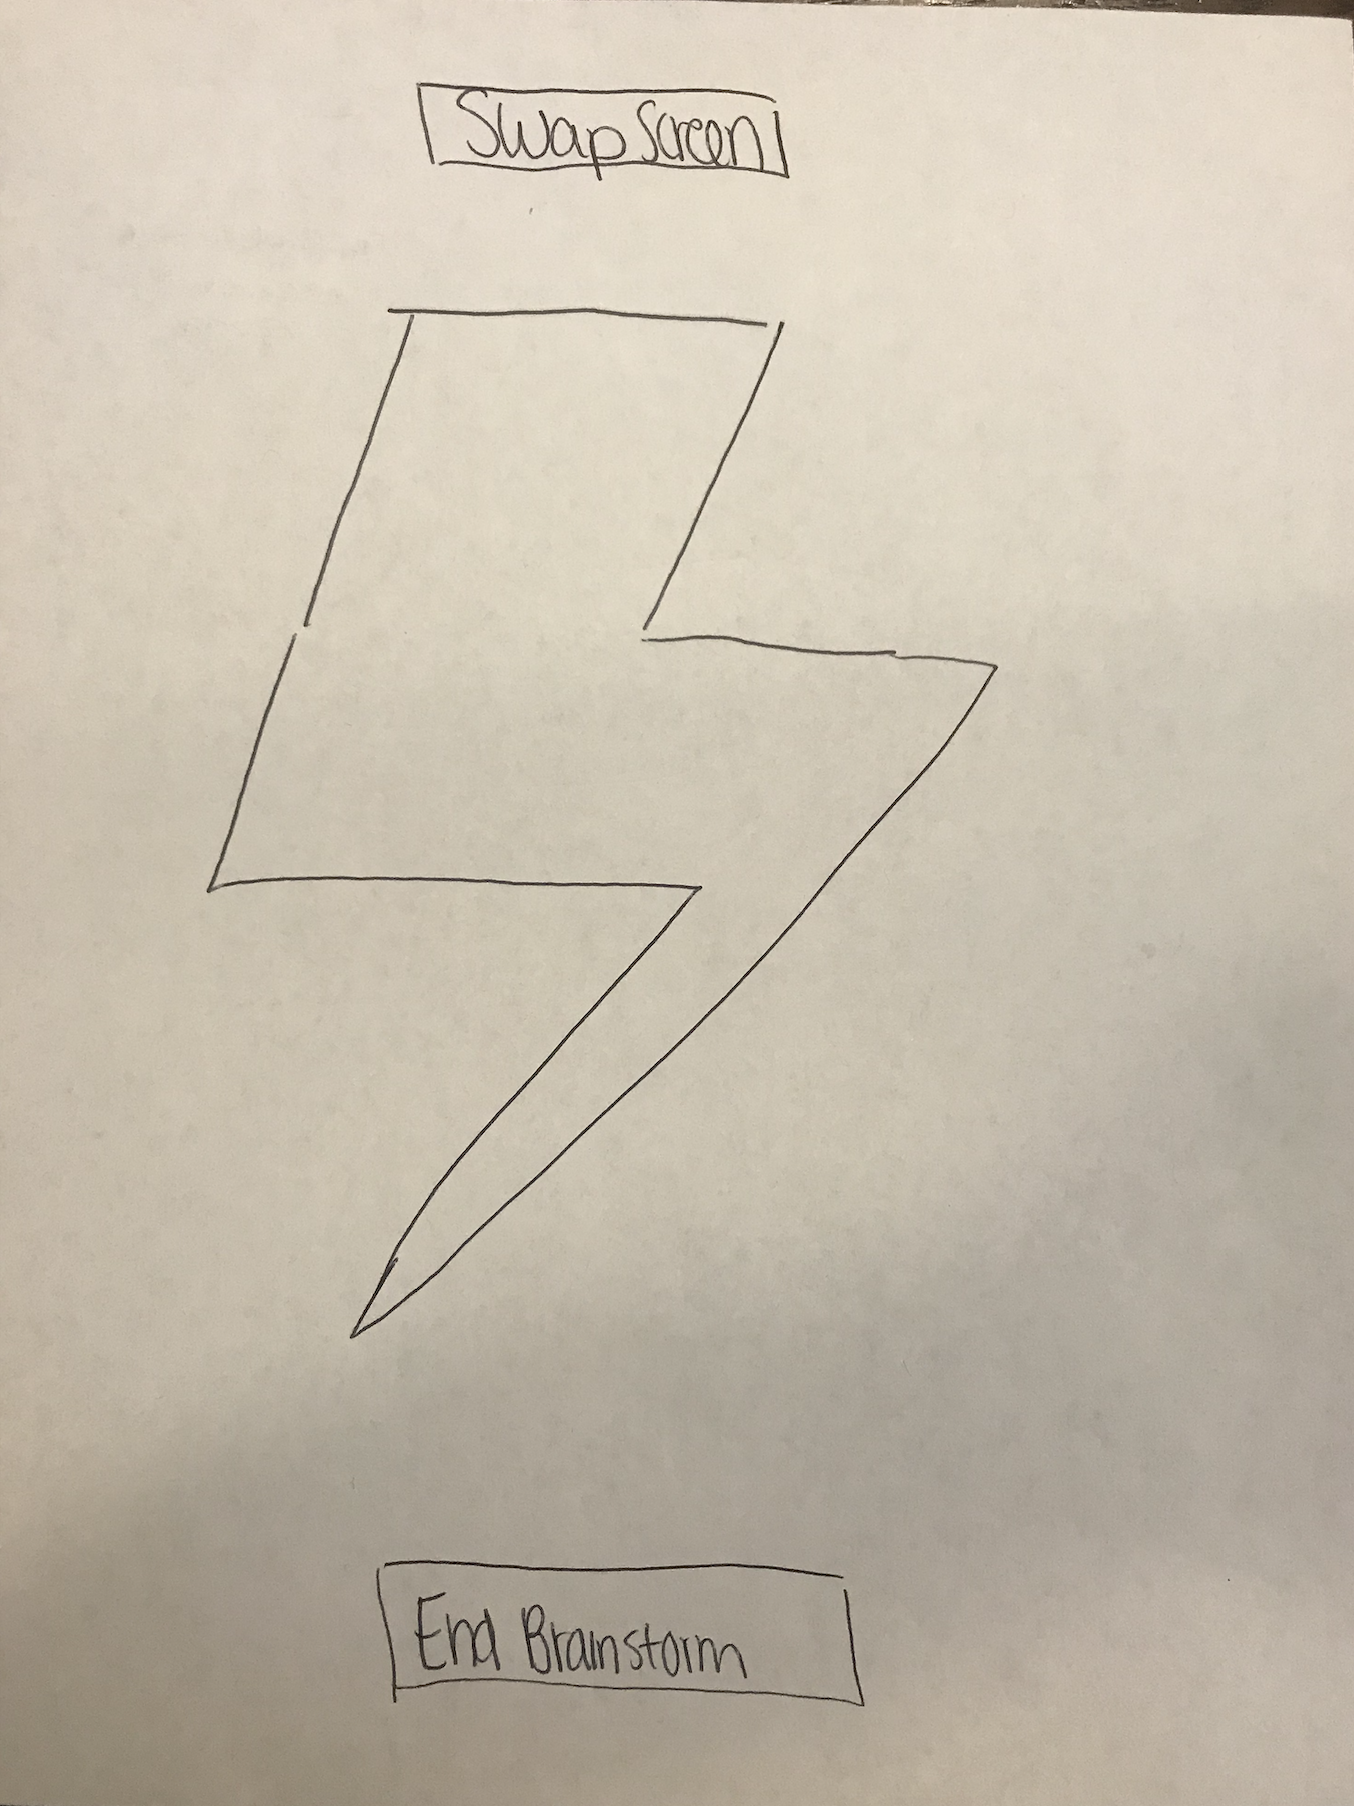 Swap Screen
End Brainstorm